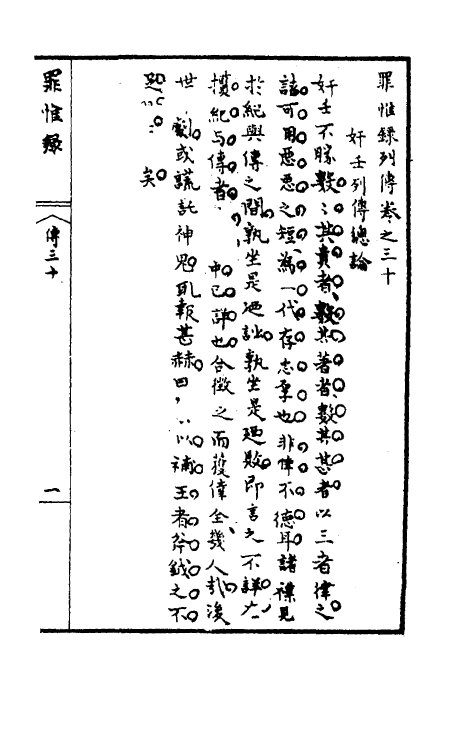 罪惟錄列傳卷之三十
奸壬列傳總論
奸壬不勝數〻其貴者數其著者數其甚者以三者律之
諸可用惡惡之短為一代存志辜也非倖不德耳諸襍見
於紀與傳之間孰坐是 訟孰坐是 敗即言之不詳
攘紀与傳者 中已詳也合徵之而獲倖全幾人哉後
世 劇或謊託神鬼 報甚赫 以補王者斧鉞之不
 矣
罪惟錄
傳三十
一